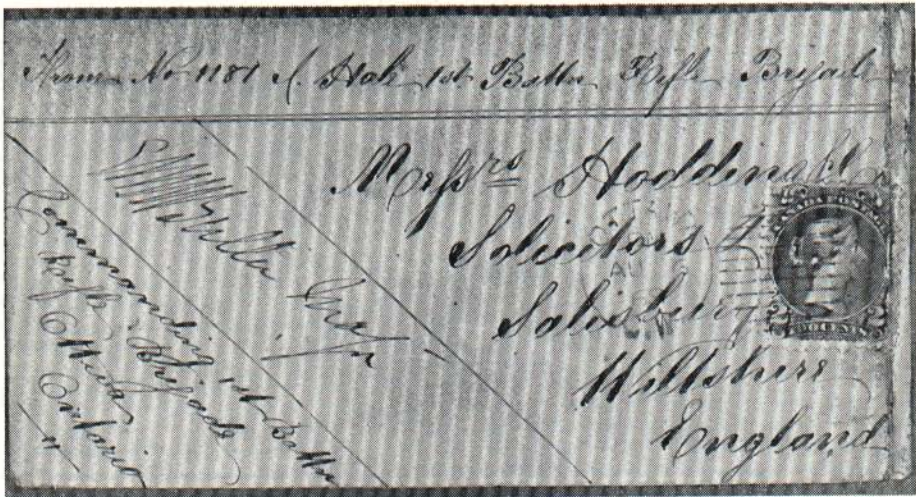 From No 1181 C. Hale 1st Battn Rifle Brigade
Messrs Hodding &
Solicitors
Salisbury
Wiltshire
England
CANADA POSTAGE
TWO CENTS
Major
Commanding 1st Battn
Rifle Brigade
Ottawa
Ontario